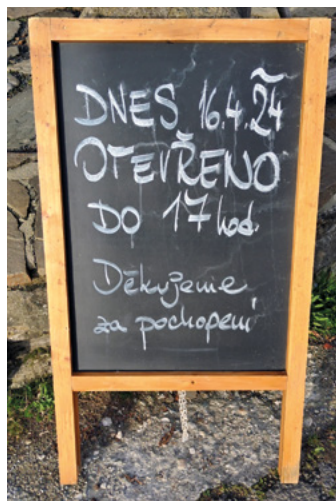 DNES 16.4.24
OTEVŘENO
DO 17 hod.
Děkujeme
za pochopení